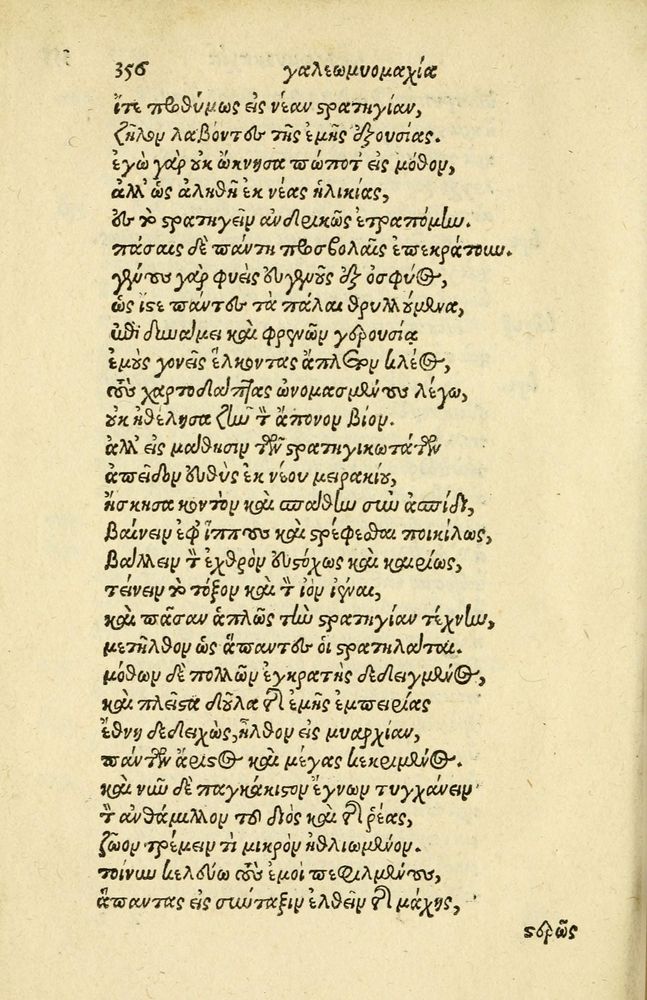 356 γαλεωμυομαχία
ἴτε προθύμως εἰς νέαν στρατηγίαν,
ζῆλον λαβόντες τῆς ἐμῆς ἐξουσίας.
ἐγὼ γὰρ οὐκ ὤκνησα πώποτ εἰς μόθον,
ἀλλ' ὡς ἀληθῆ ἐκ νέας ἡλικίας,
εὖ τὸ στρατηγεῖν ἀνδρικῶς ἐτραπόμην.
πάσαις δὲ πάντη προσβολαῖς ἐπεκράτουν.
γένους γὰρ φυεὶς εὐγενοῦς ἐξ ὀσφύος,
ὡς ἴστε πάντες τὰ πάλαι θρυλλούμενα,
ἐπὶ δυνάμει καὶ φρενῶν γερουσία
ἐμοὺς γονεῖς ἕλκοντας ἄπλετον κλέος,
τοὺς χαρτοδάπτας ὠνομασμένους λέγω,
οὐκ ἠθέλησα ζῆν τὸν ἄπονον βίον.
ἀλλ' εἰς μάθησιν τῶν στρατηγικωτάτων
ἀπεῖδον εὐθὺς ἐκ νέου μειρακίου,
ἤσκησα κοντὸν καὶ σπάθην σὺν ἀσπίδι,
βαίνειν ἐφ ἵππους καὶ στρέφεσθαι ποικίλως,
βάλλειν τὸν ἐχθρὸν εὐστόχως καὶ καιρίως,
τείνειν τὸ τόξον καὶ τὸν ἰὸν ἰέναι,
καὶ πᾶσαν ἁπλῶς τὴν στρατηγίαν τέχνην,
μετῆλθον ὡς ἅπαντες οἱ στρατηλάται.
μόθων δὲ πολλῶν ἐγκρατὴς δεδειγμένος,
καὶ πλεῖστα δοῦλα τῆς ἐμῆς ἐμπειρίας
ἔθνη δεδειχὼς, ἦλθον εἰς μυαρχίαν,
πάντων ἄριστος καὶ μέγας κεκριμένος.
καὶ νῦν δὲ παγκάκιστον ἔγνων τυγχάνειν
τὸν ἀνθάμιλλον τοῦ διὸς καὶ τῆς ῥέας,
ζῶον τρέμειν τὶ μικρὸν ἠθλιωμένον.
τοίνυν κελεύω τοὺς ἐμοὶ πεφιλμένους,
ἅπαντας εἰς σύνταξιν ἐλθεῖν τῆς μάχης,
στερρῶς